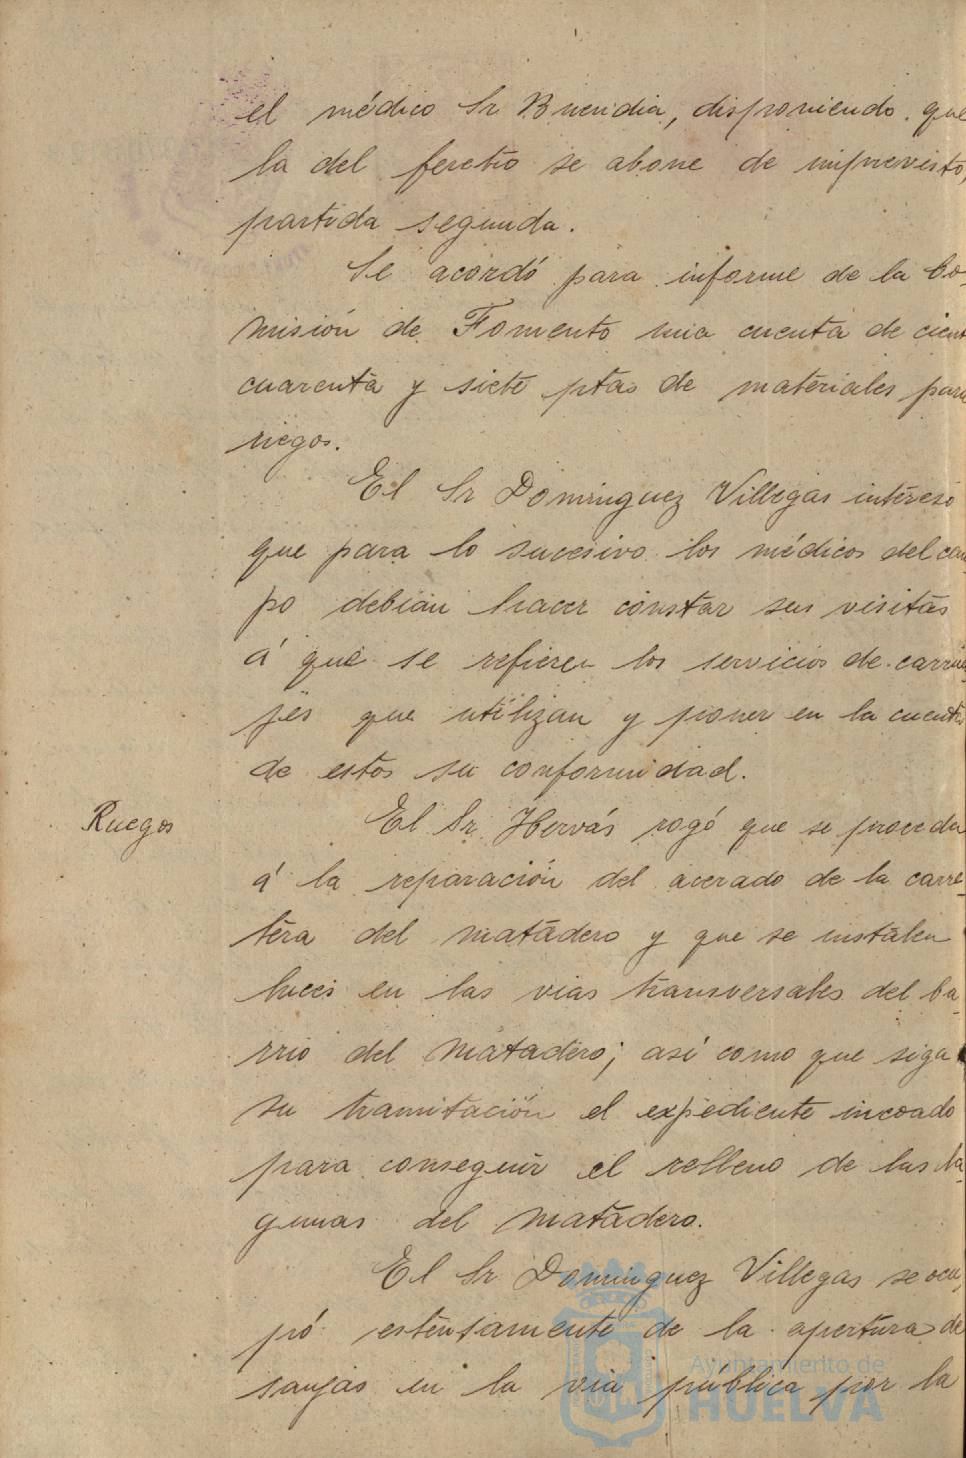 el médico Sr Buendia, disponiendo que
la del feretro se abone de imprevisto,
partida segunda.
Se acordó para informe de la Co-
misión de Fomento una cuenta de cient
cuarenta y siete ptas de materiales para
riegos.
El Sr Dominguez Villegas intereso
que para lo sucesivo los médicos del cam
po debian hacer constar sus visitas
á que se refieren los servicios de carrua-
jes que utilizan y poner en la cuenta
de estos su conformidad.
Ruegos
El Sr. Hervás rogó que se proceda
á la reparación del acerado de la carre-
tera del matadero y que se instalen
luces en las vias transversales del ba-
rrio del Matadero; así como que siga
su tramitación el expediente incoado
para conseguir el relleno de las la-
gunas del Matadero.
El Sr Dominguez Villegas se ocu
pó estensamente de la apertura de
sanjas en la via pública por la
Ayuntamiento de
HUELVA